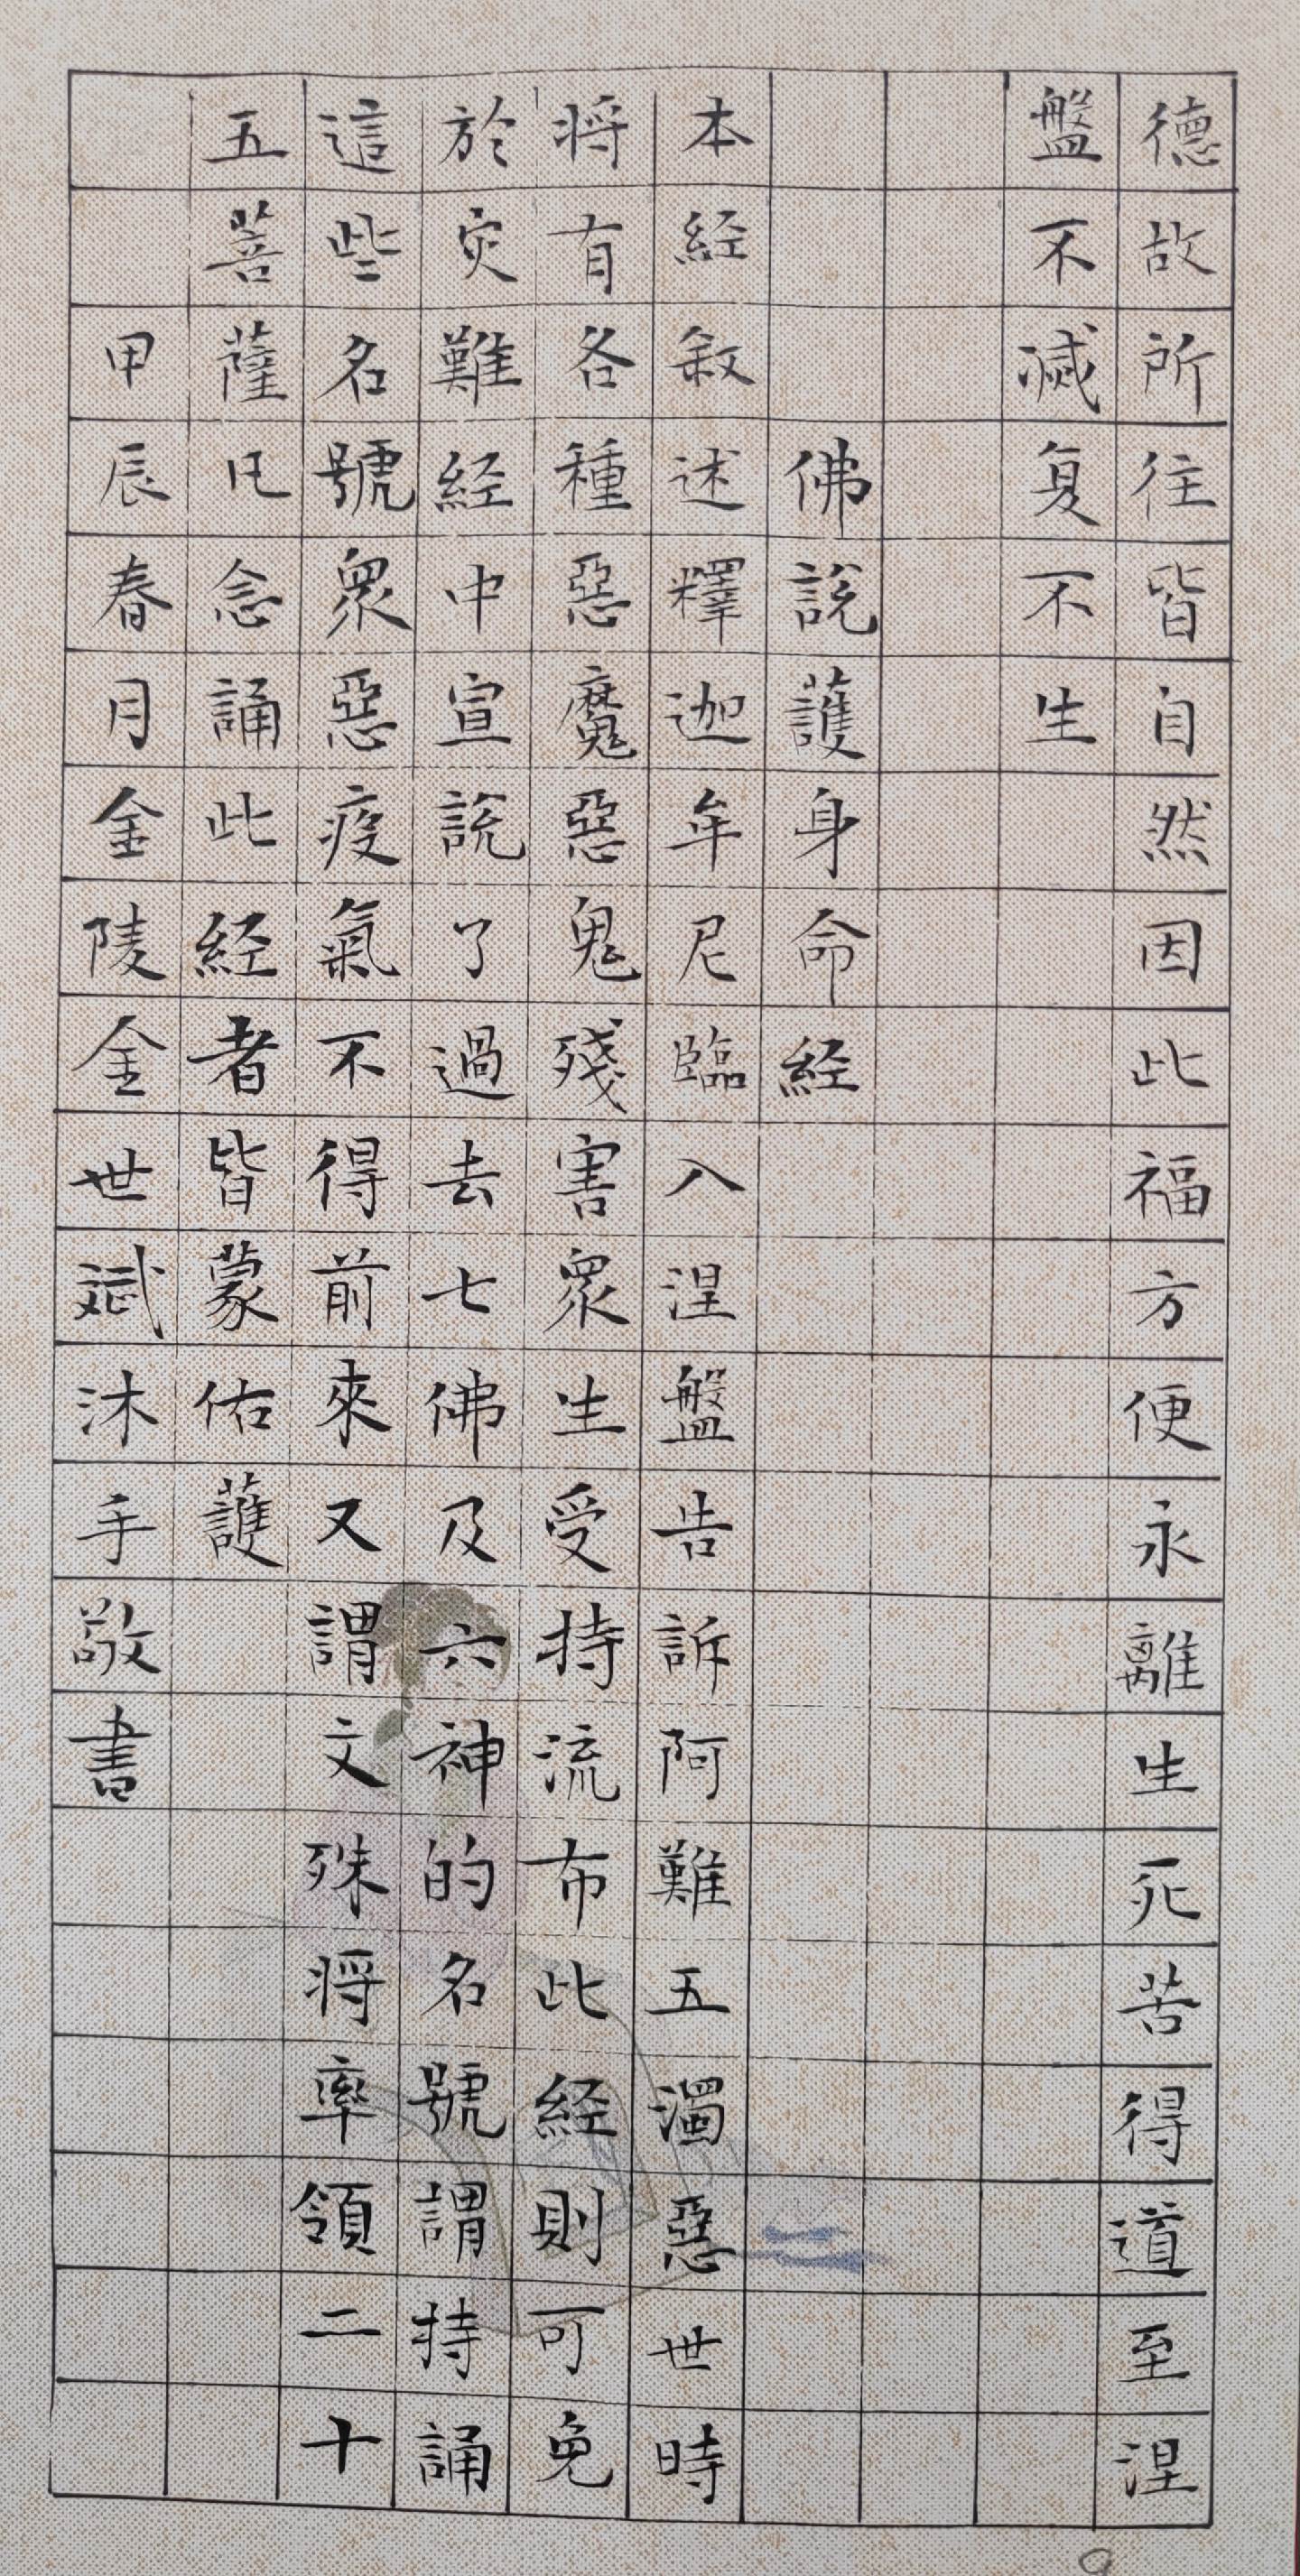 德故所往皆自然因此福方便永離生死苦得道至涅
盤不滅复不生
佛說護身命経
本経敘述釋迦牟尼臨入涅盤告訴阿難五濁惡世時
将有各種惡魔惡鬼殘害眾生受持流布此経則可免
於灾難経中宣說了過去七佛及六神的名號謂持誦
這些名號眾惡疫氣不得前來又謂文殊将率領二十
五菩薩凡念誦此経者皆蒙佑護
甲辰春月金陵金世斌沐手敬書